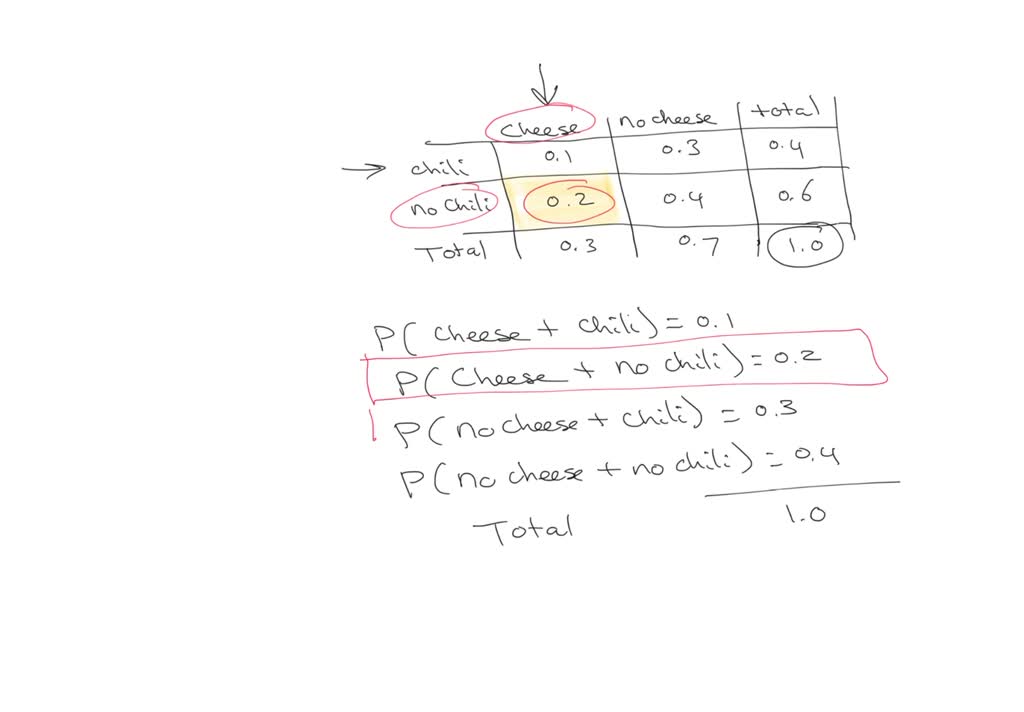 cheese no cheese total
chili 0.1 0.3 0.4
no chili 0.2 0.4 0.6
Total 0.3 0.7 1.0
P( cheese + chili) = 0.1
P( Cheese + no chili) = 0.2
P( no cheese + chili) = 0.3
P( no cheese + no chili) = 0.4
Total 1.0